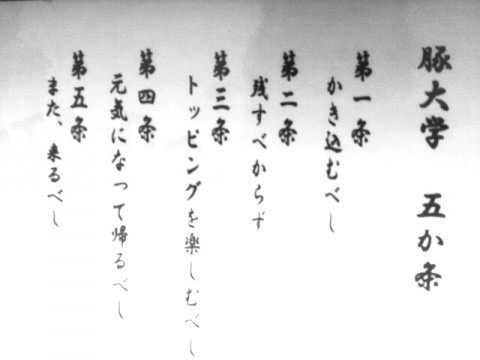 豚大学 五か条
第一条
かき込むべし
第二条
残すべからず
第三条
トッピングを楽しむべし
第四条
元気になって帰るべし
第五条
また、来るべし